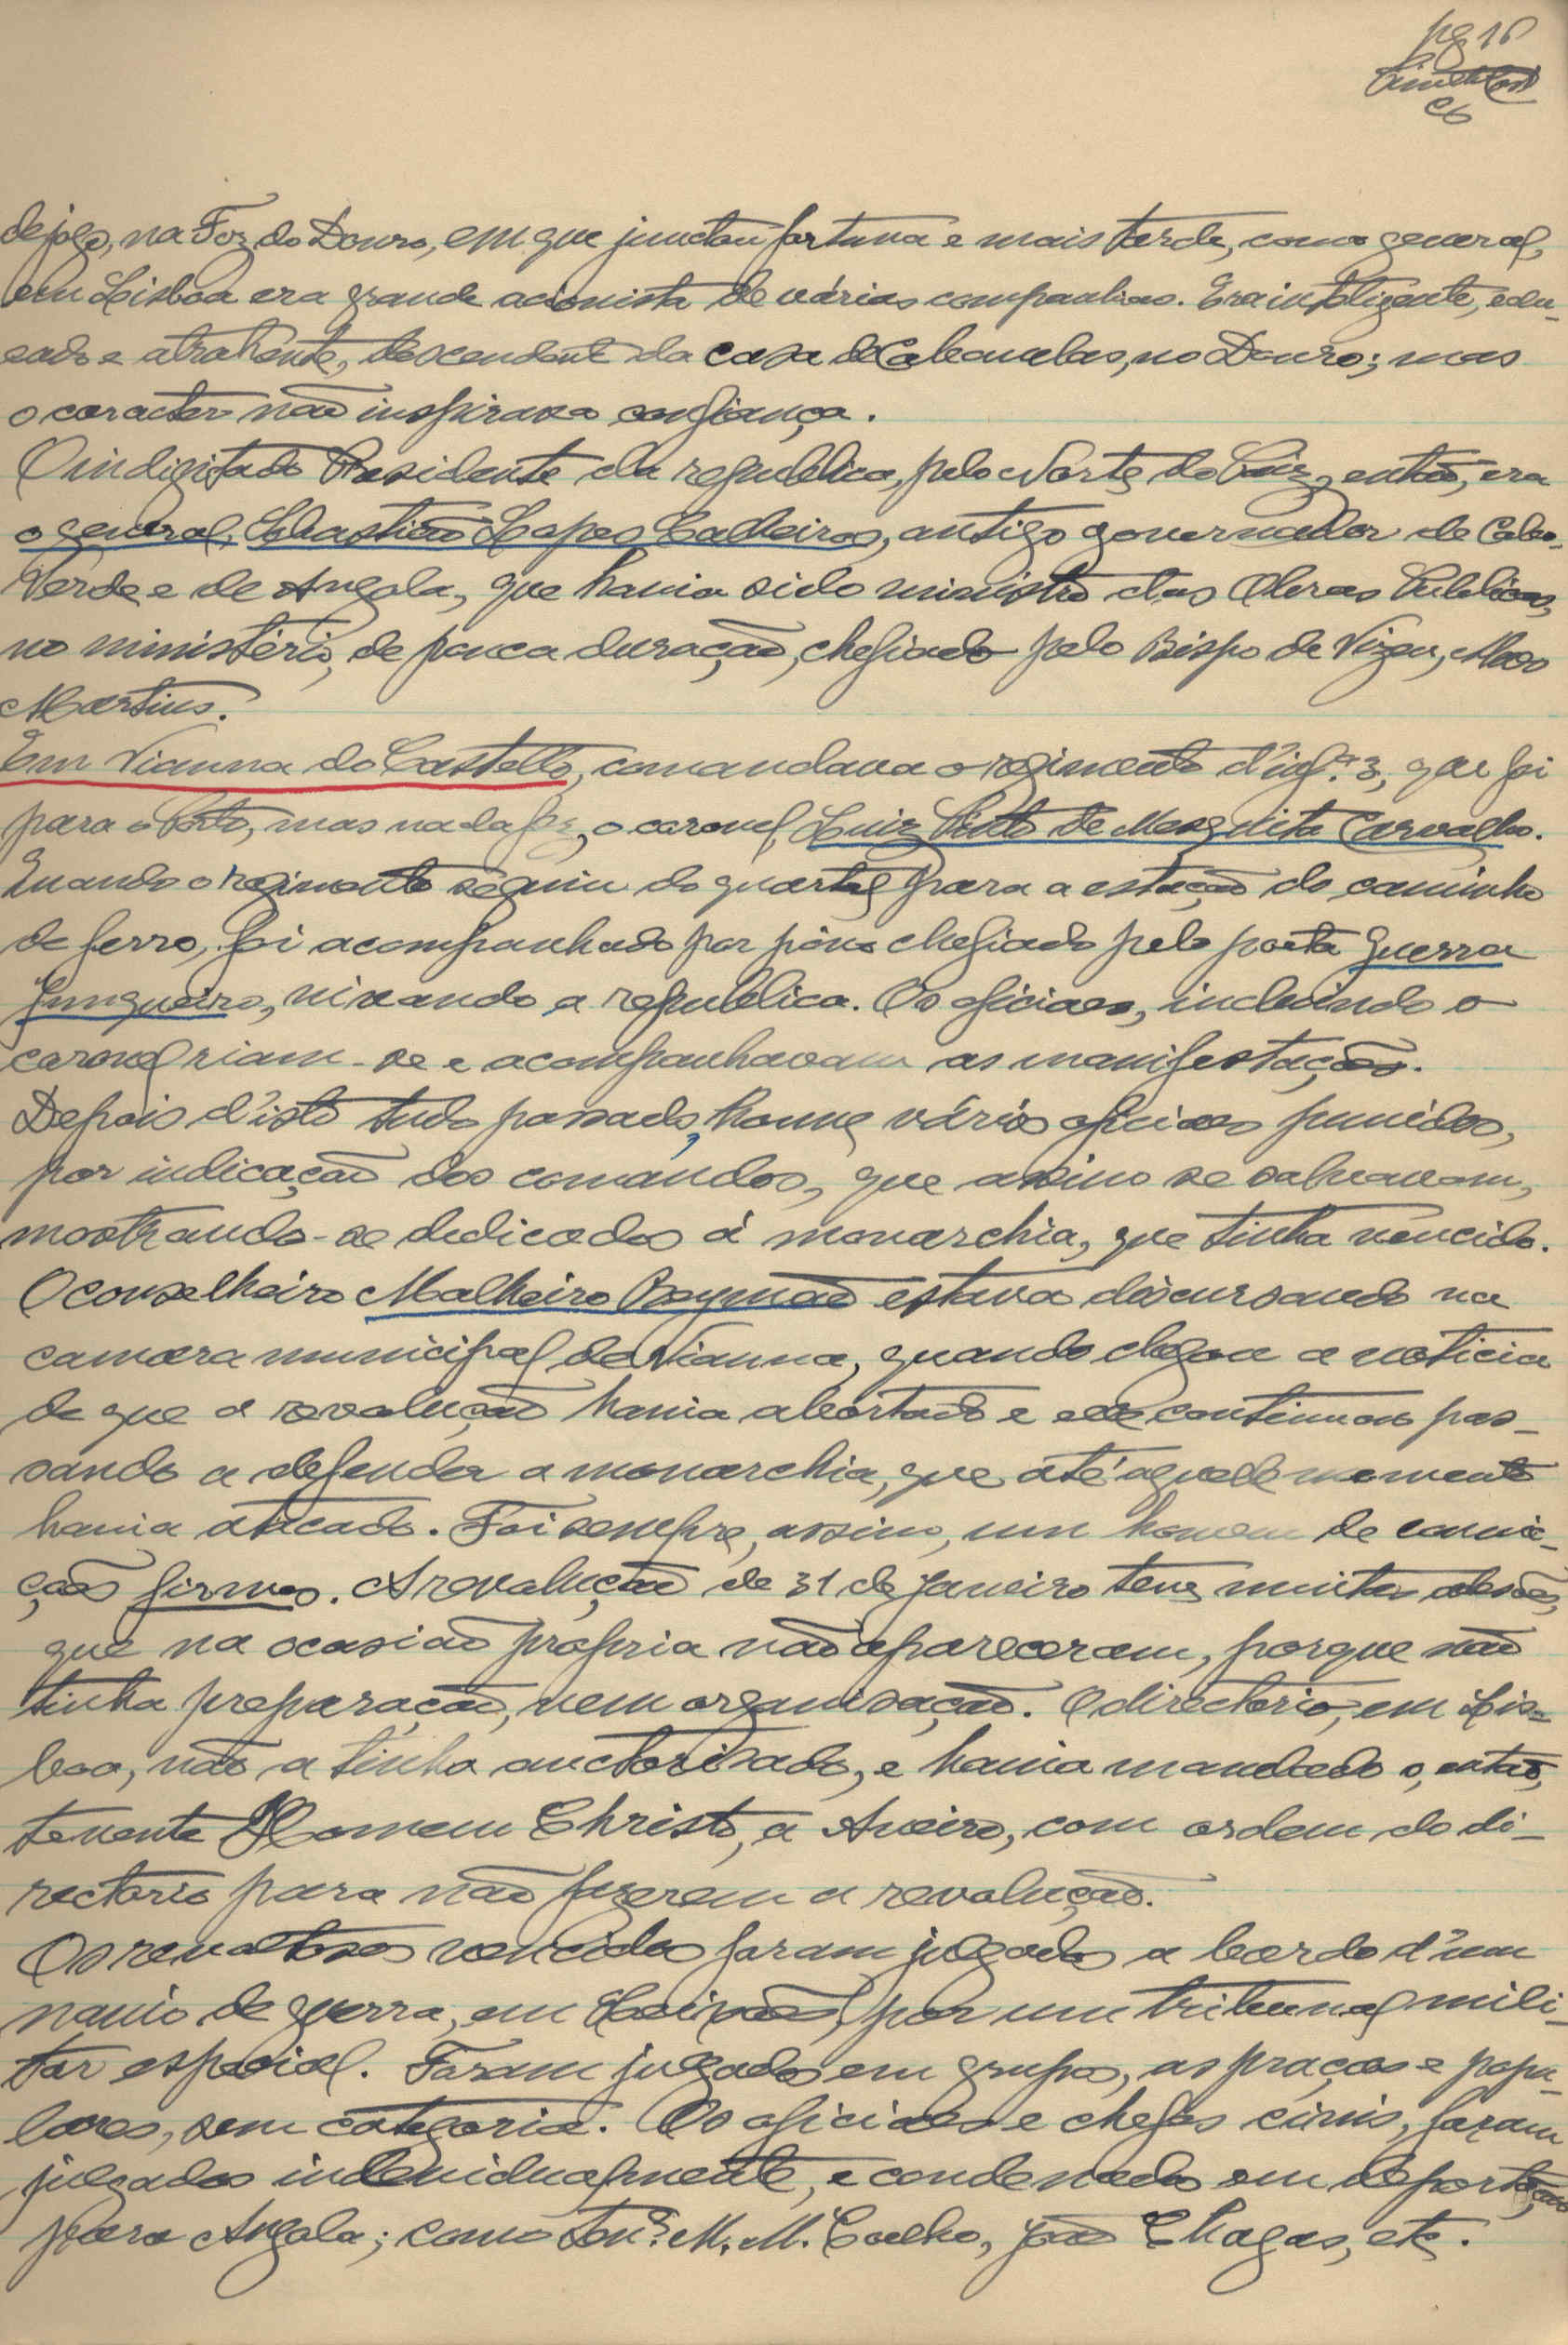 pg 16
de jogo, na Foz do Douro, em que junctou fortuna e mais tarde, como general,
em Lisboa era grande acionista de várias companhias. Era inteligente, edu-
cado e atrahente, descendente da casa de Cabanelas, no Douro; mas
o caracter não inspirava confiança.
O indigitado Presidente da republica, pelo Norte do Paiz, então, era
o general, Sebastião Lopes Calheiros, antigo governador de Cabo-
Verde e de Angola, que havia sido ministro das Obras Publicas,
no ministério, de pouca duração, chefiado pelo Bispo de Vizeu, Alves
Martins.
Em Vianna do Castello, comandava o regimento d'inf.ª 3, que foi
para o Porto, mas nada fez, o coronel, Luiz Pinto de Mesquita Carvalho.
Quando o regimento seguiu do quartel para a estação do caminho
de ferro, foi acompanhado por pôvo chefiado pelo poeta Guerra
Junqueiro, vivando a republica. Os oficiaes, incluindo o
coronel riam-se e acompanhavam as manifestações.
Depois d'isto tudo passado, houve vários oficiaes punidos,
por indicação dos comandos, que assim se salvavam,
mostrando-se dedicados á monarchia, que tinha vencido.
O conselheiro Malheiro Reymão estava discursando na
camara municipal de Vianna, quando chegou a noticia
de que a revolução havia abortado e ele continuou pas-
sando a defender a monarchia, que até aquele momento
havia atacado. Foi sempre, assim, um homem de convic-
ções firmes. A revolução de 31 de Janeiro teve muitas adesões,
que na ocasião propria não apareceram, porque não
tinha preparação, nem organisação. O directorio, em Lis-
boa, não a tinha auctorisado, e havia mandado o, então,
tenente Homem Christo, a Aveiro, com ordem do di-
rectorio para não fazerem a revolução.
Os revoltosos vencidos foram julgados a bordo d'um
navio de guerra, em Leixões, por um tribunal mili-
tar especial. Foram julgados em grupos, as praças e popu-
lares, sem categoria. Os oficiaes e chefes civis, foram
julgados individualmente, e condenados em deportação
para Angola; como Ten.e M. M. Coelho, João Chagas, etc.